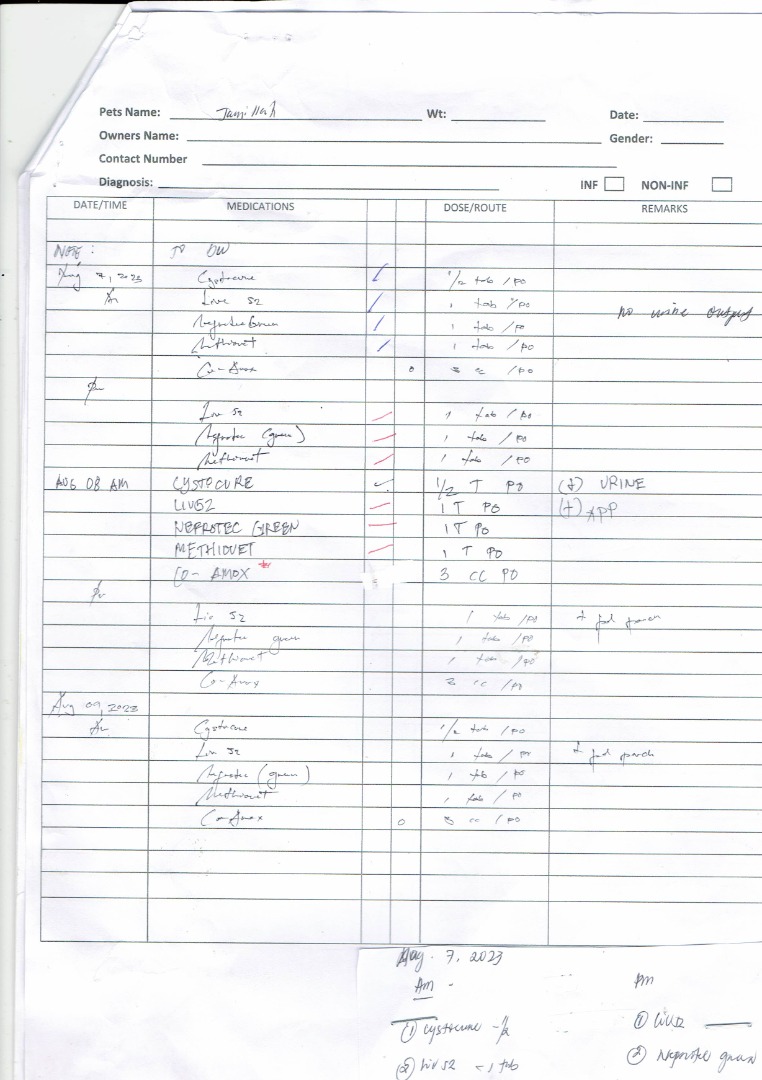 Pets Name: Wt: Date:
Owners Name: Gender:
Contact Number
Diagnosis: INF NON-INF
DATE/TIME MEDICATIONS DOSE/ROUTE REMARKS
NOTE : DW
Aug 7, 2023 Cystocure 1/2 tab /PO
Am Liv 52 1 tab /PO no urine output
Nephrotec Green 1 tab /PO
Methiovet 1 tab /PO
Co-Amox 3 cc /PO
Pm
Liv 52 1 tab /PO
Nephrotec (green) 1 tab /PO
Methiovet 1 tab /PO
AUG 08 AM CYSTOCURE 1/2 T PO (+) URINE
LIV52 1 T PO (+) APP
NEFROTEC GREEN 1 T PO
METHIOVET 1 T PO
CO-AMOX 3 CC PO
Pm
Liv 52 1 tab /PO
Nephrotec green 1 tab /PO
Methiovet 1 tab /PO
Co-Amox 3 cc /PO
Aug 09, 2023
Am Cystocure 1/2 tab /PO
Liv 52 1 tab /PO
Nephrotec (green) 1 tab /PO
Methiovet 1 tab /PO
Co-Amox 3 cc /PO
Aug. 7, 2023
Am - Pm
① Cystocure - 1/2 ① Liv52
② Liv 52 - 1 tab ② Neprotec green